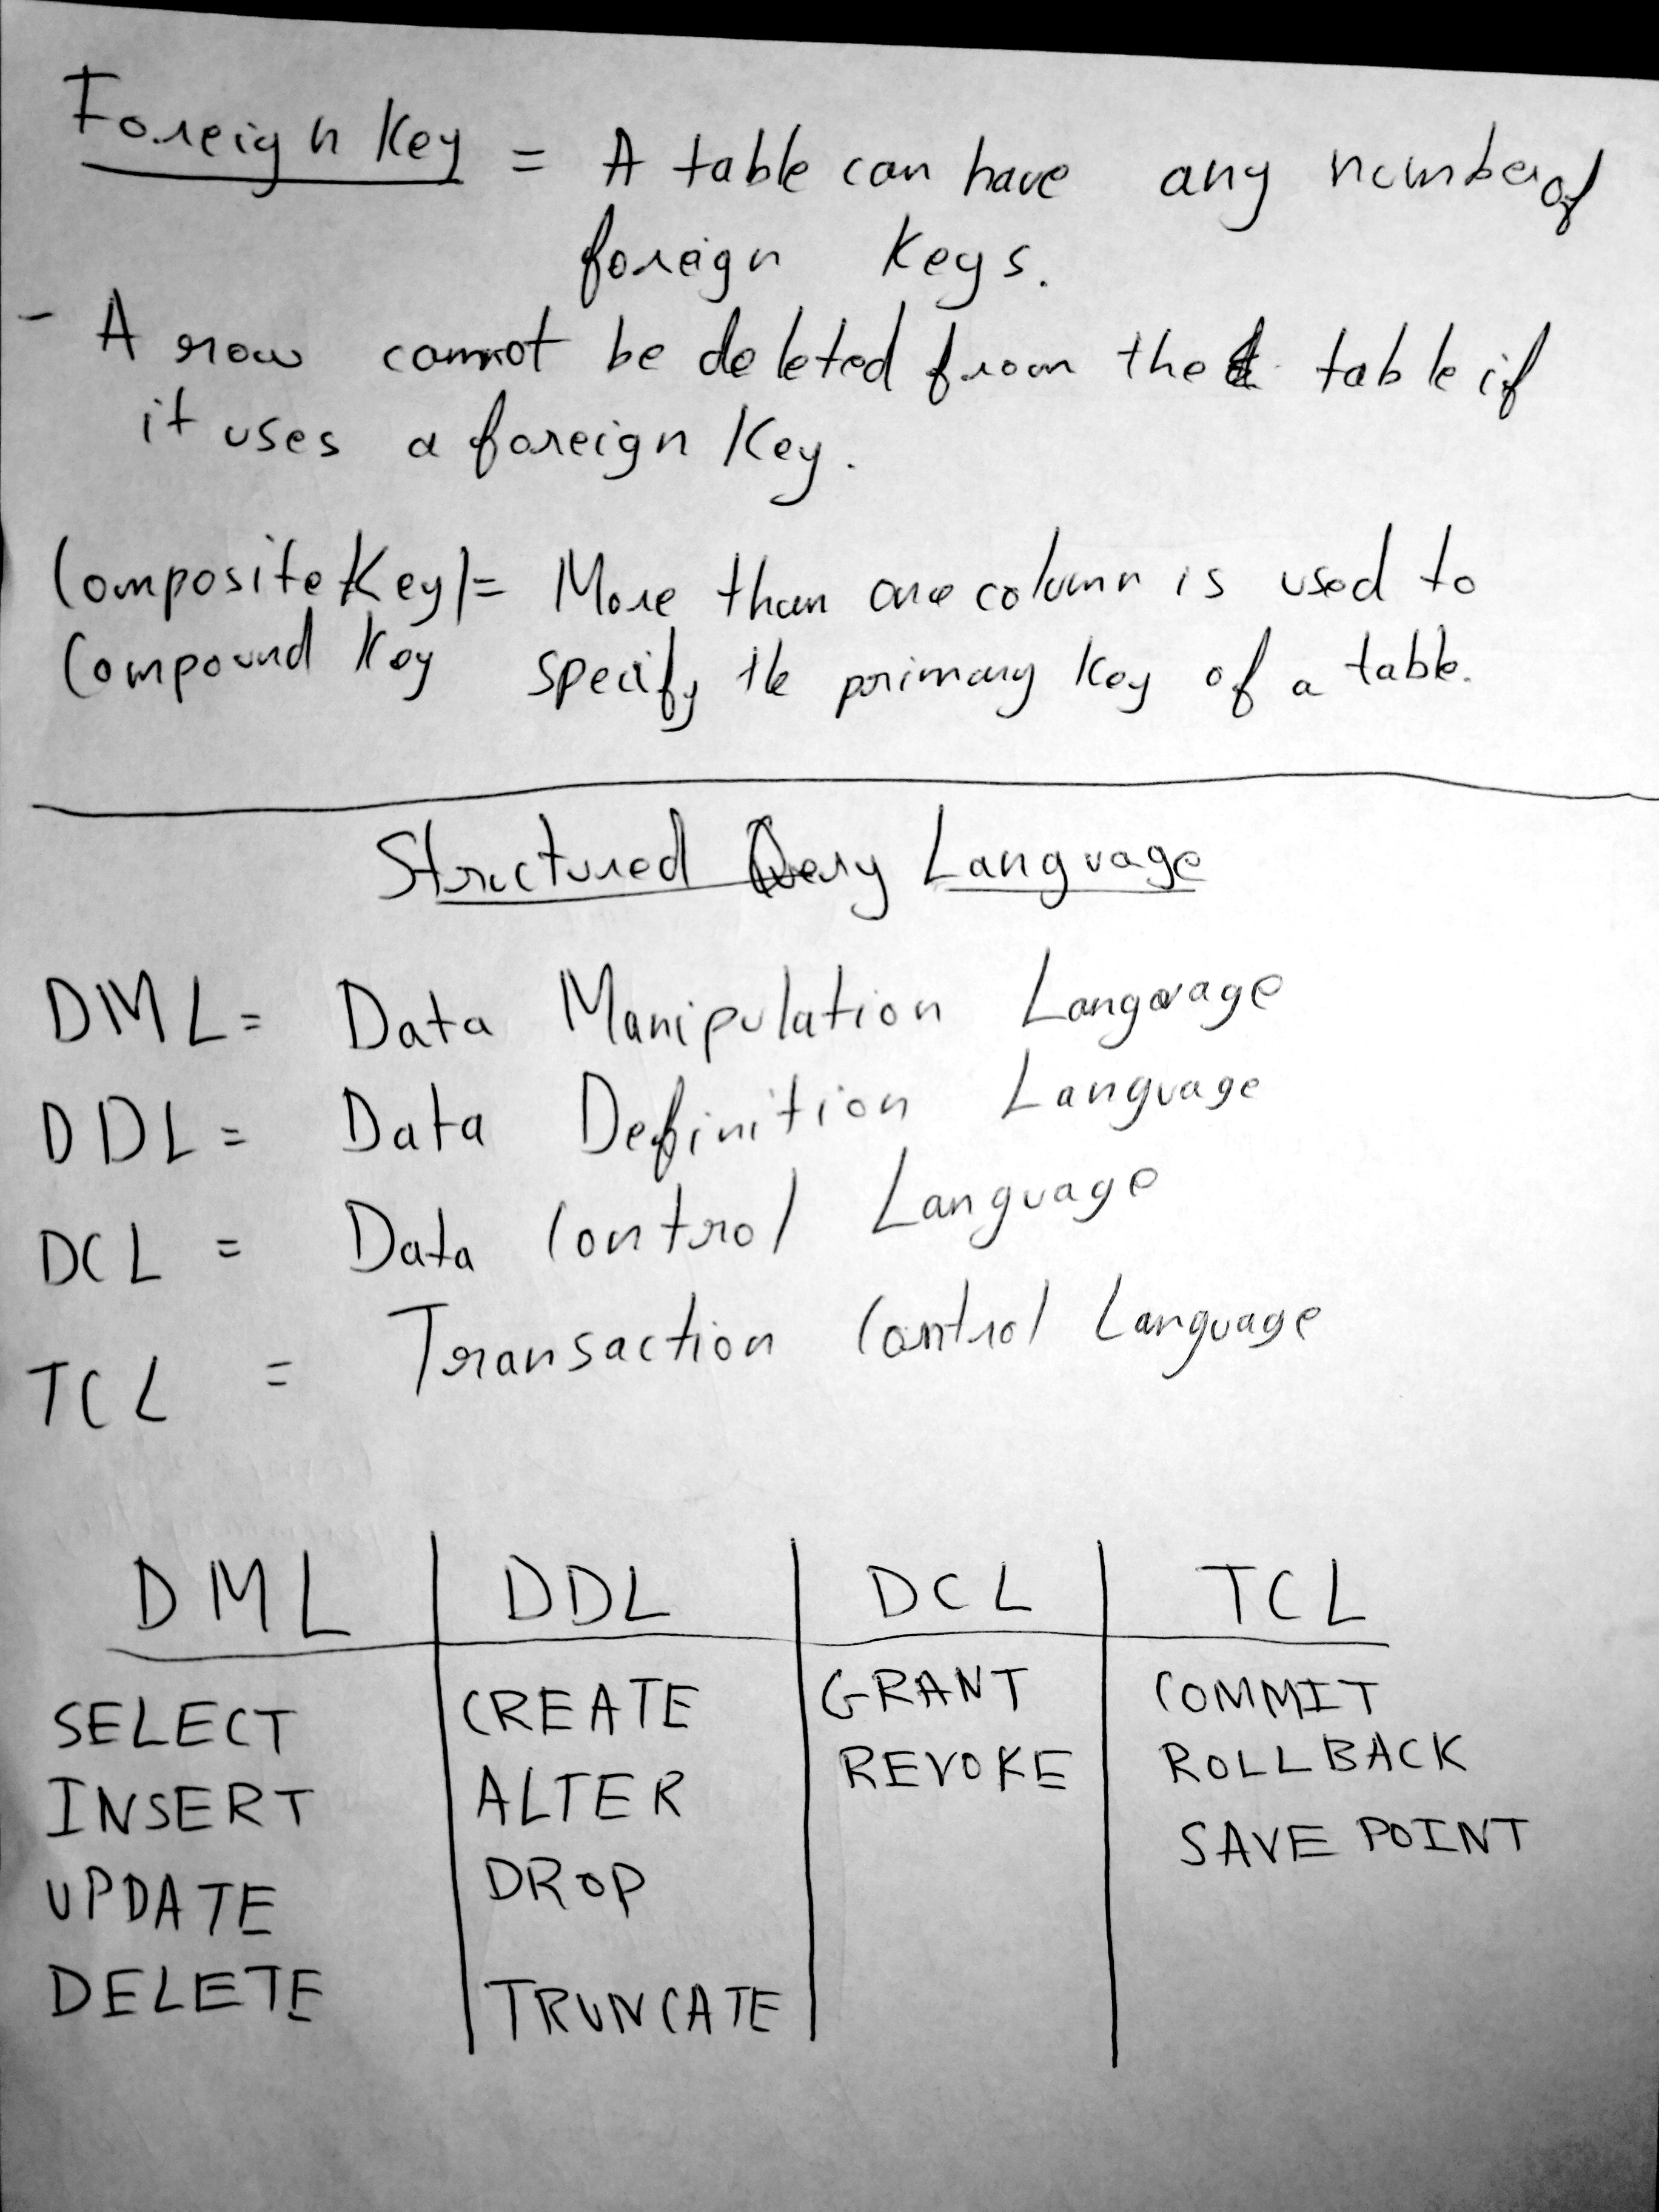 Foreign Key = A table can have any number of
foreign Keys.
- A row cannot be deleted from the table if
it uses a foreign Key.
Composite Key/= More than one column is used to
Compound Key specify the primary Key of a table.
Structured Query Language
DML = Data Manipulation Language
DDL = Data Definition Language
DCL = Data Control Language
TCL = Transaction Control Language
DML | DDL | DCL | TCL
SELECT | CREATE | GRANT | COMMIT
INSERT | ALTER | REVOKE | ROLLBACK
UPDATE | DROP | | SAVE POINT
DELETE | TRUNCATE